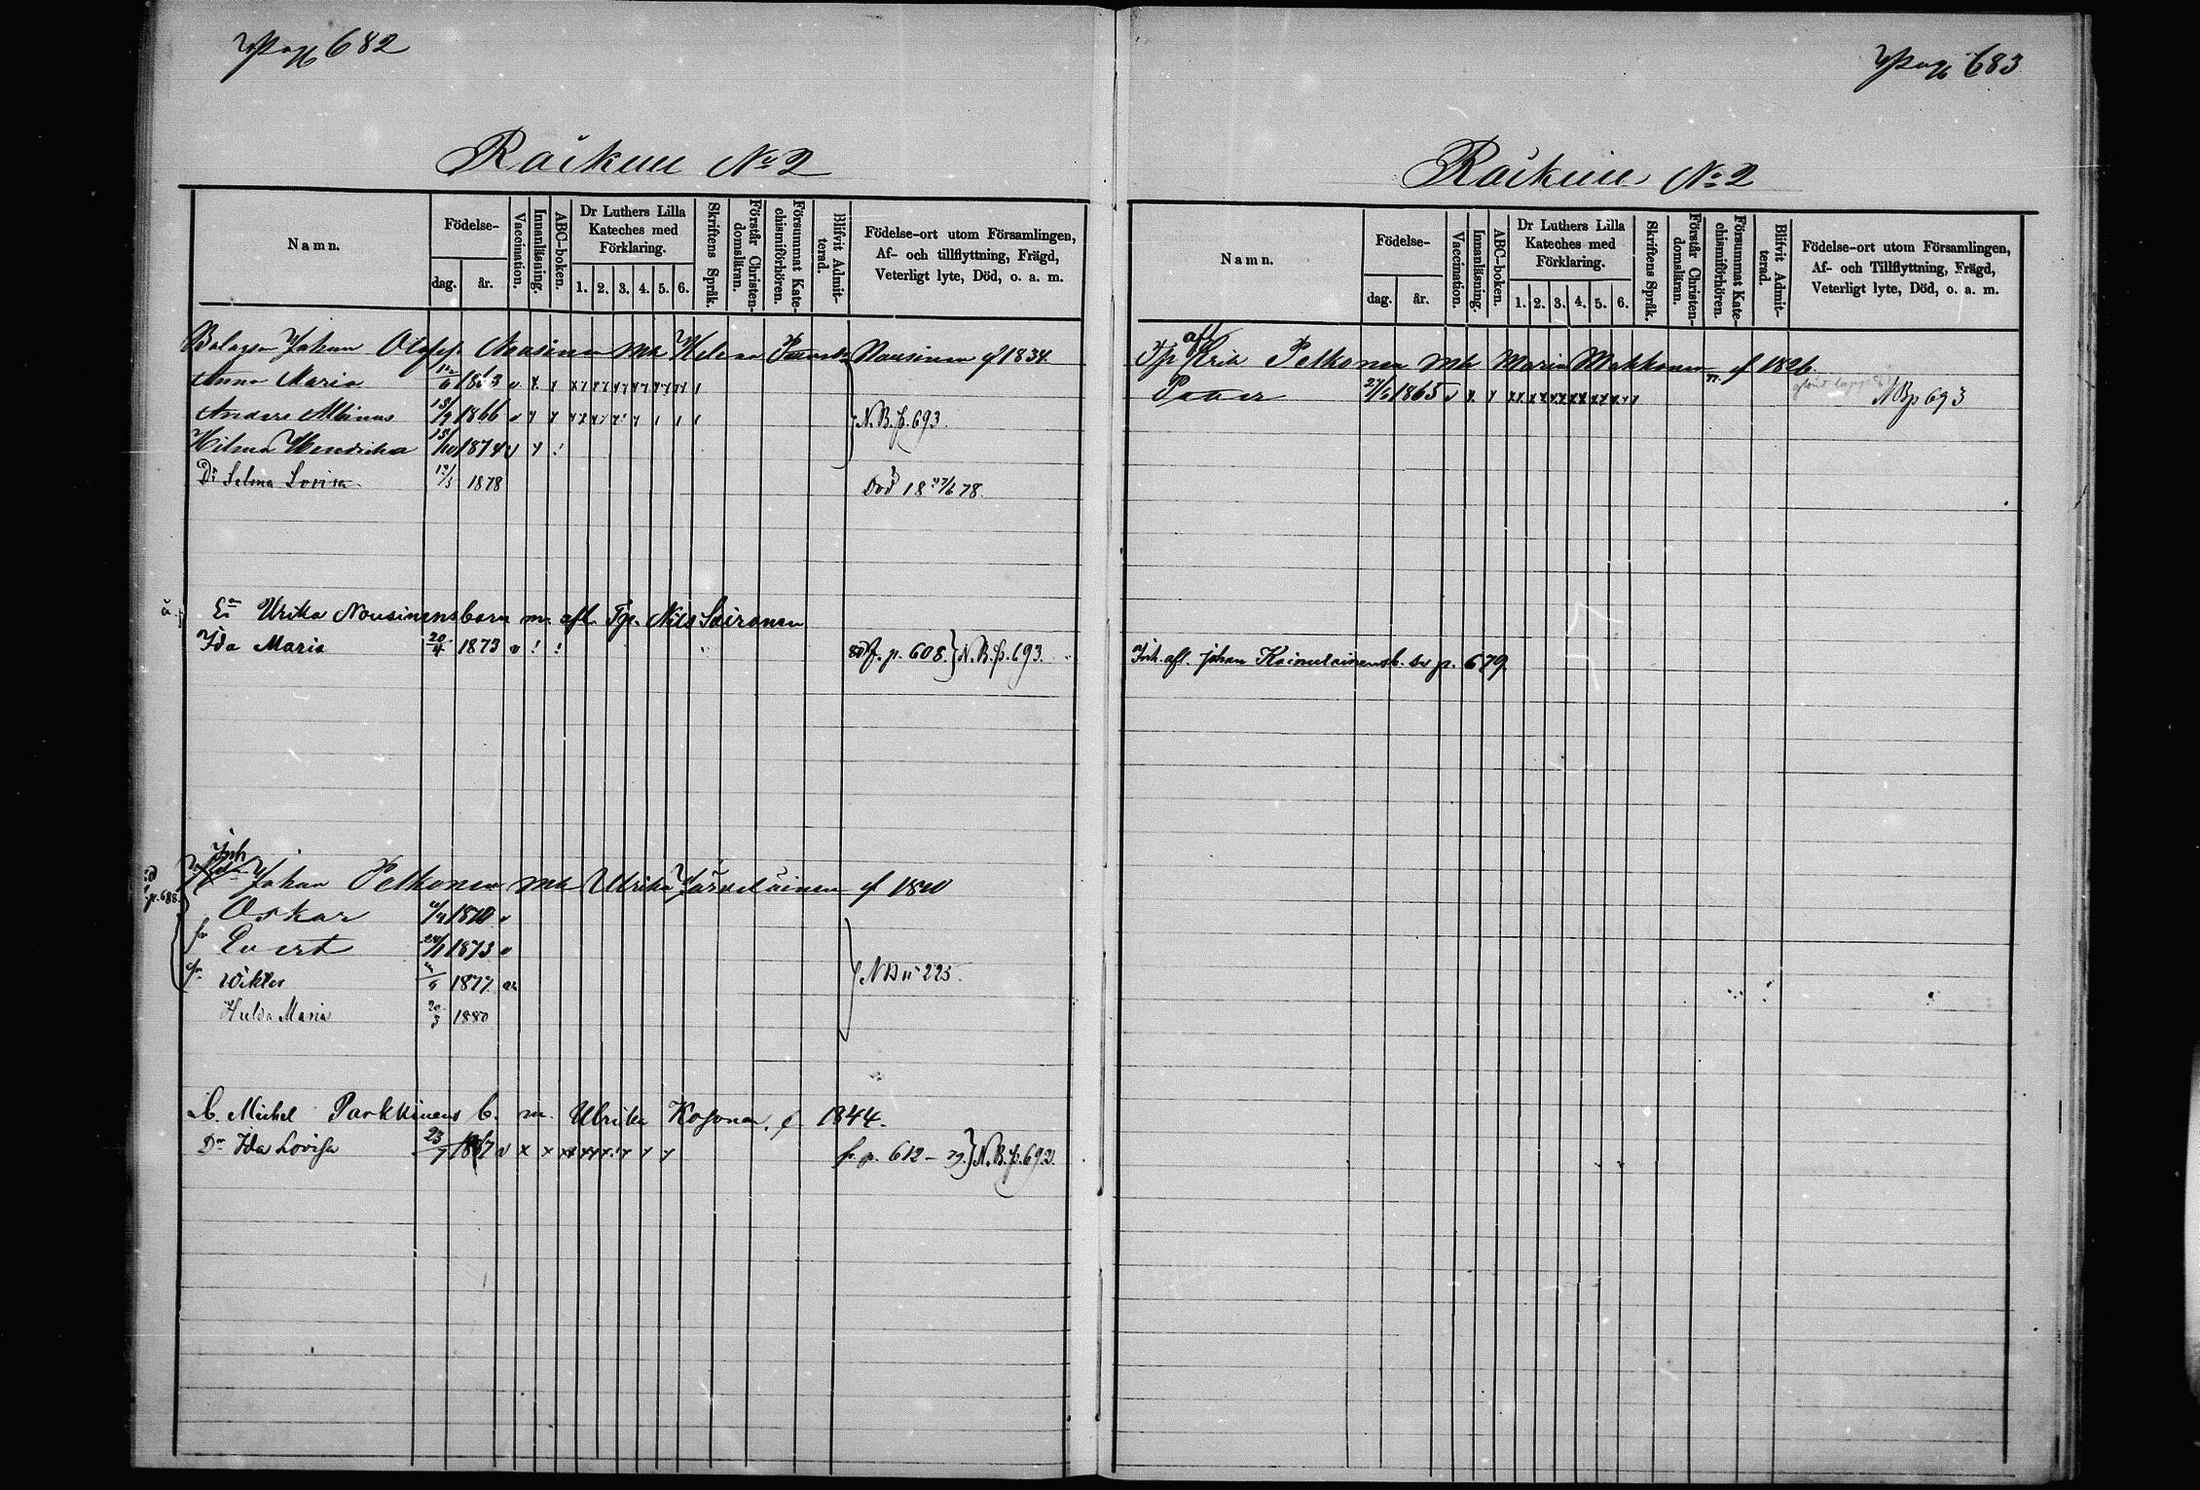 Pag 682
Räikuu No 2
Namn.
Födelse-
dag.
år.
Vaccination.
Innanläsning.
ABC-boken.
Dr Luthers Lilla
Kateches med
Förklaring.
1. 2. 3. 4. 5. 6.
Skriftens Språk.
Förstår Christen-
domsläran.
Försummat Kate-
chismiförhören.
Blifvit Admit-
terad.
Födelse-ort utom Församlingen,
Af- och tillflyttning, Frägd,
Veterligt lyte, Död, o. a. m.
Johan Nousinen mh Helena Nousinen f 1834.
Anna Maria 12/6 1863 v x
Anders Albinus 1866 v x N.B. p. 693.
Hilma Hendrika 1874 v x
Dr Selma Lovisa 1878 Död 18 27/6 78.
Ulrika Nousinens barn m. afl. Tp. Nils Soironen
Ida Maria 20/4 1873 v f. p. 608. N.B. p. 693.
Inh
Johan Pelkonen mh Ulrika Järveläinen f 1840
p. 688.
Oskar 1870 v
fr Evert 1873 v
fr. Viktor 1877 N B 225.
Hulda Maria 20/3 1880
L. Michel Parkkinens b. m. Ulrika Kosonen f 1844.
Dr Ida Lovisa 23/9 1867 v x x fr p. 612 – 79. N.B. p. 692.
Pag 683
Räikuu No 2
Namn.
Födelse-
dag.
år.
Vaccination.
Innanläsning.
ABC-boken.
Dr Luthers Lilla
Kateches med
Förklaring.
1. 2. 3. 4. 5. 6.
Skriftens Språk.
Förstår Christen-
domsläran.
Försummat Kate-
chismiförhören.
Blifvit Admit-
terad.
Födelse-ort utom Församlingen,
Af- och Tillflyttning, Frägd,
Veterligt lyte, Död, o. a. m.
afl
Tp Erik Pelkonen mh Maria Makkonen f 1826.
Petter 27/6 1865 v x NB p 693
Inh. afl. Johan Kaimulainens b. se p. 679.